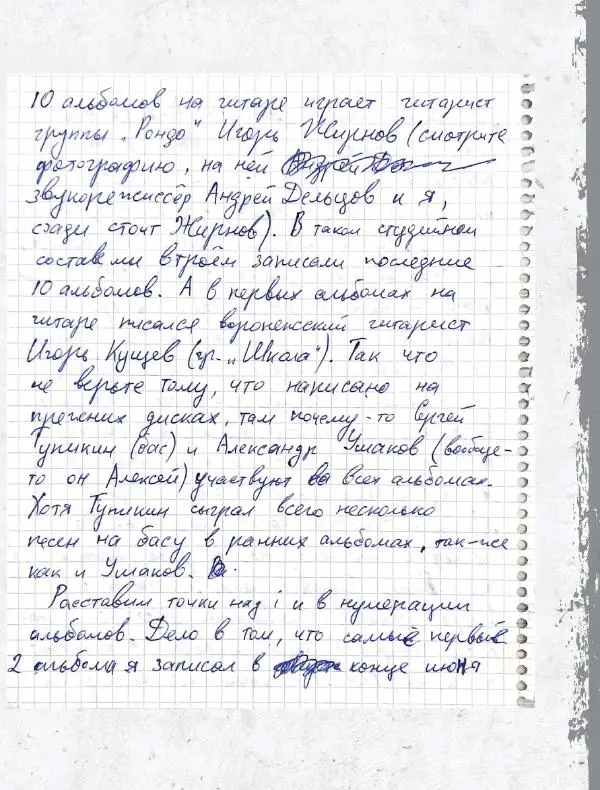 10 альбомов на гитаре играет гитарист
группы „Рондо" Игорь Жирнов (смотрите
фотографию, на ней
звукорежиссёр Андрей Дельцов и я,
сзади стоит Жирнов). В таком студийном
составе мы втроём записали последние
10 альбомов. А в первых альбомах на
гитаре писался воронежский гитарист
Игорь Кущев (гр. „Школа"). Так что
не верьте тому, что написано на
прежних дисках, там почему-то Сергей
Тупикин (бас) и Александр Ушаков (вообще-
то он Алексей) участвуют во всех альбомах.
Хотя Тупикин сыграл всего несколько
песен на басу в ранних альбомах, так-же
как и Ушаков.
Расставим точки над i и в нумерации
альбомов. Дело в том, что самые первые
2 альбома я записал в конце июня